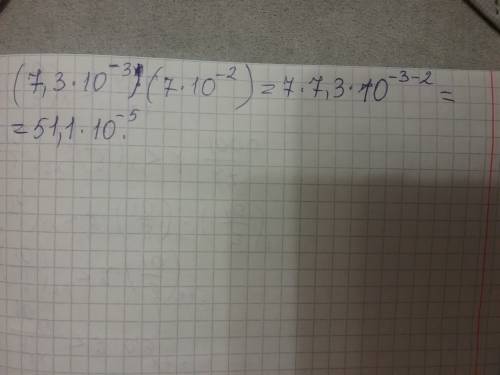 (7,3·10⁻³)·(7·10⁻²)=7·7,3·10⁻³⁻²=
=51,1·10⁻⁵.